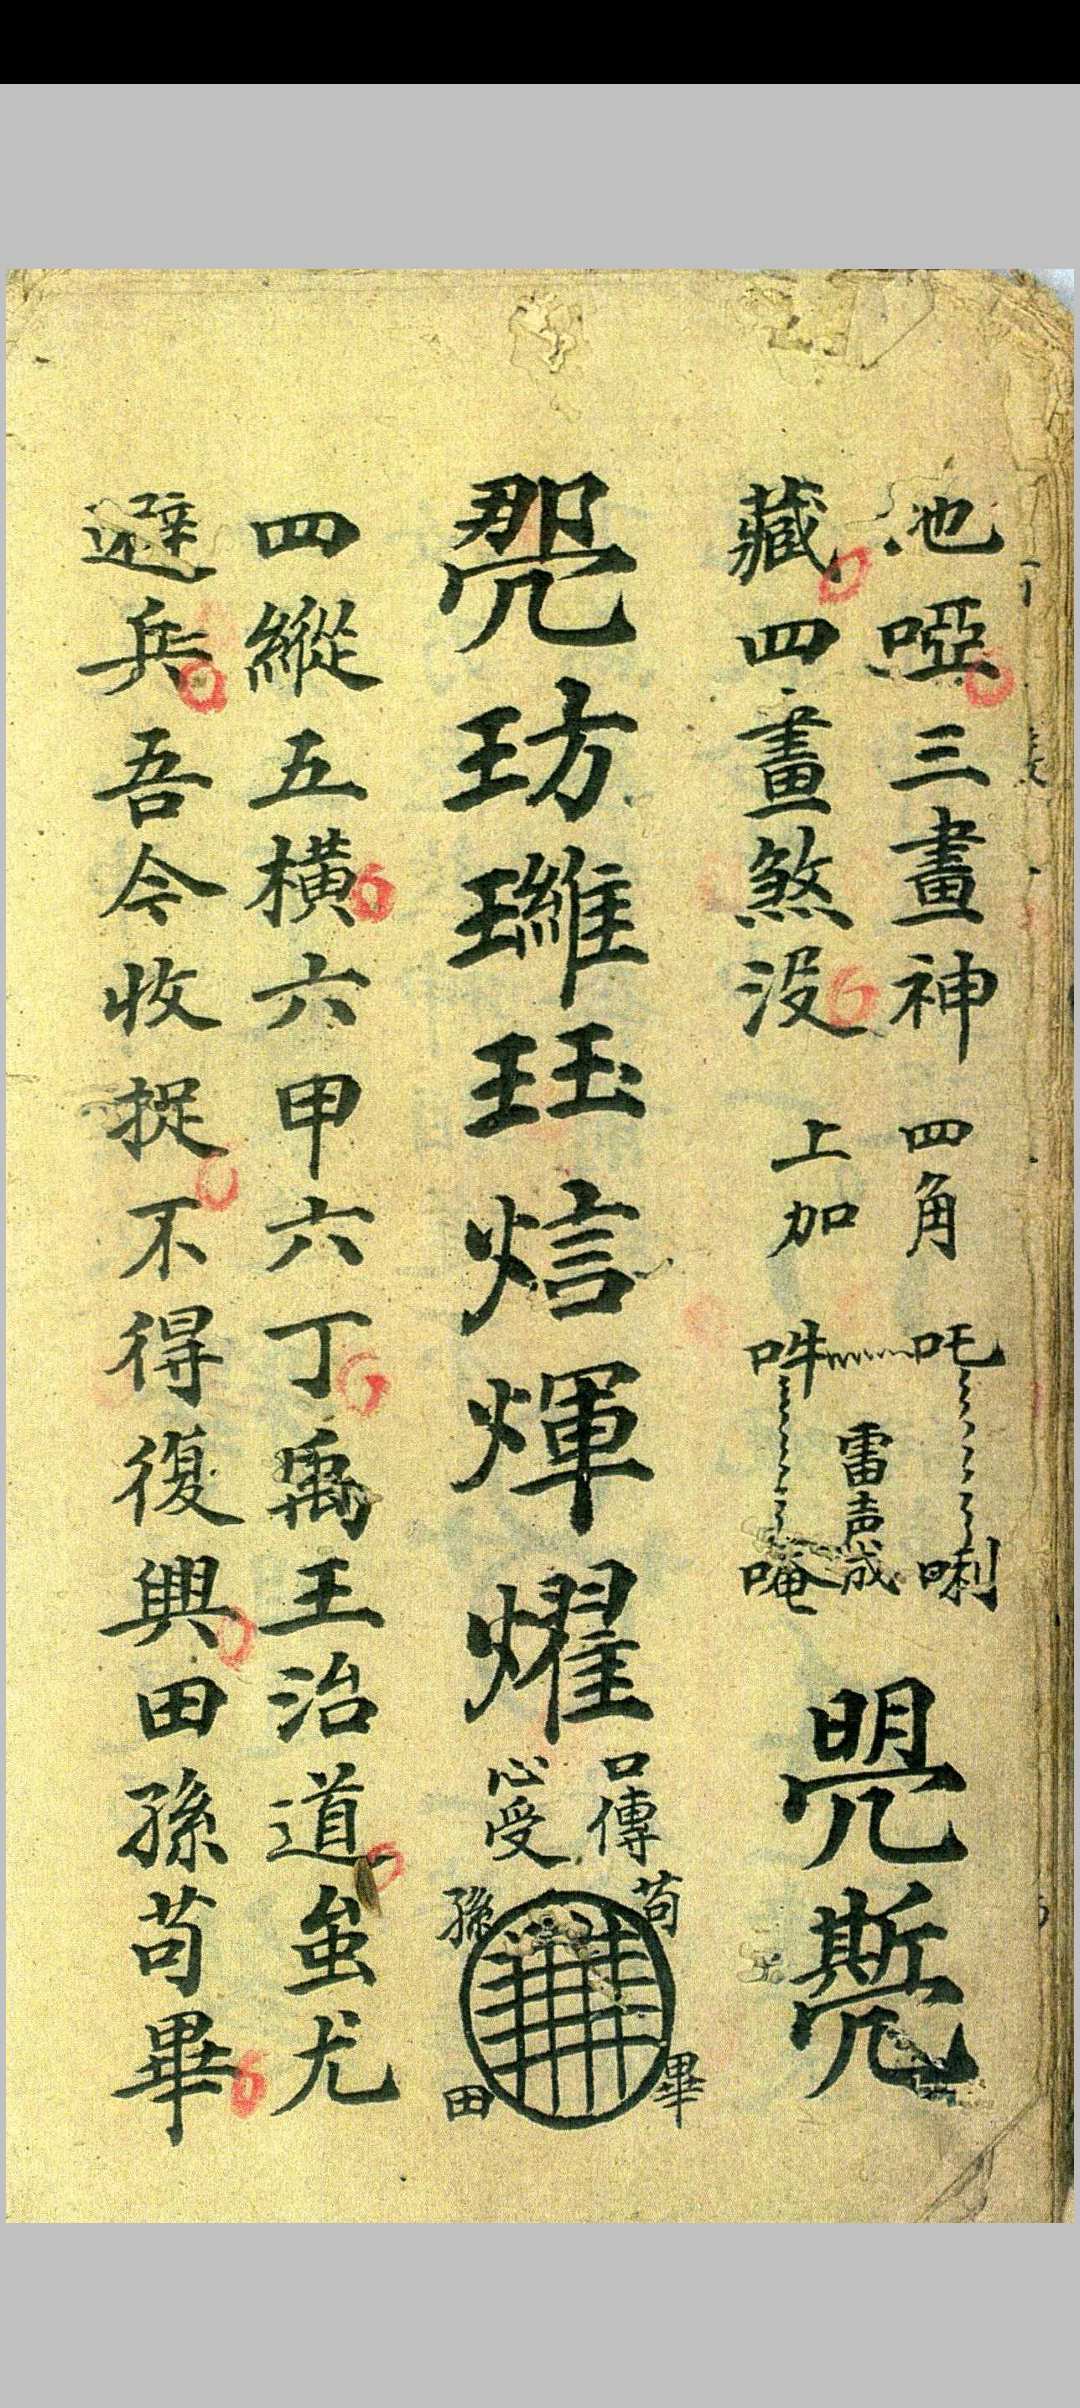 池啞三畫神
藏四畫煞没
四角
上加
吒
唎
吽
唵
雷声成
珏
煇燿
口傳
心受
苟
畢
孫
田
四縱五橫六甲六丁禹王治道蚩尤
避兵吾今收捉不得復興田孫苟畢